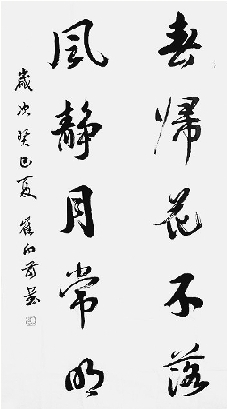 春歸花不落
風靜月常明
歲次癸巳夏